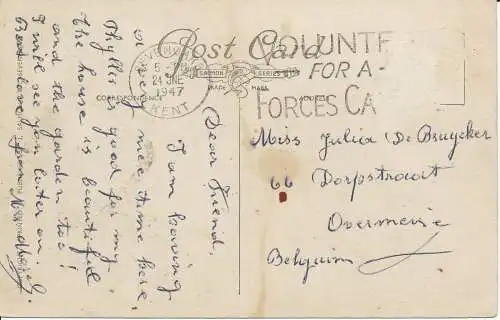 Post Card
SALMON SERIES
TRADE MARK
CORRESPONDENCE
5-
24 JNE
1947
KENT
VOLUNTE
FOR A
FORCES CA
Dear Friend,
I am having
a very nice time here,
Phyllis is good for my
The house is beautiful
and the garden too!
I will see you later on.
Best love from
Miss Julia De Bruycker
66 Dorpstraat
Overmeire
Belguim